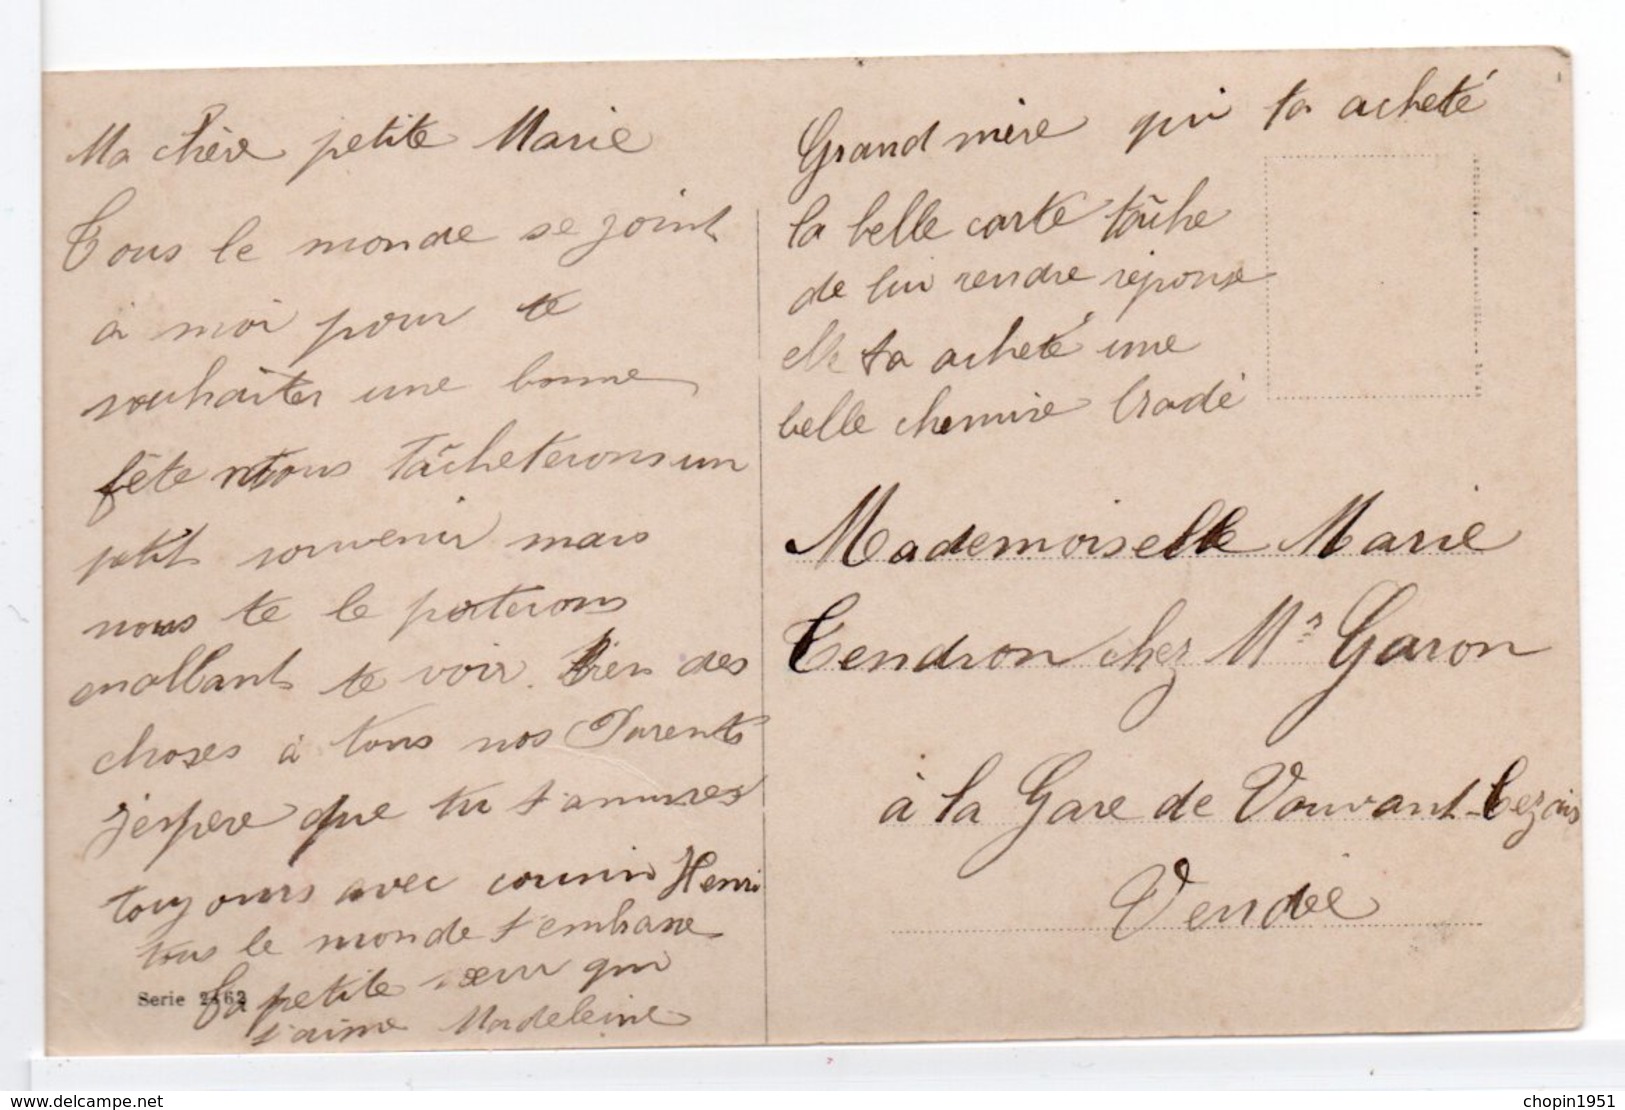 Ma chère petite Marie
Tous le monde se joint
à moi pour te
souhaiter une bonne
fête nous t'acheterons un
petit souvenir mais
nous te le porterons
enallant te voir. Bien des
choses à tous nos Parents
j'espere que tu t'amuses
toujours avec cousin Henri
tous le monde t'embrasse
Ta petite sœur qui
t'aime Madeleine
Serie 2462
Grand mère qui ta acheté
la belle carte tâche
de lui rendre réponse
elle ta acheté une
belle chemise brodé
Mademoiselle Marie
Tendron chez Mr Garon
à la Gare de Vouvant-Cezais
Vendée
www.delcampe.net
chopin1951